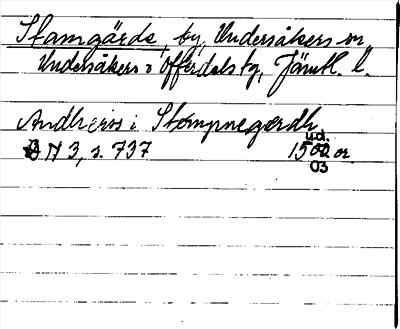 Stamgärde, by, Undersåkers sn
Undersåkers o Offerdals tg, Jämtl. l.
Andhers i Stompnegærdh
N 3, s. 737 1502 or.
u.d.
03